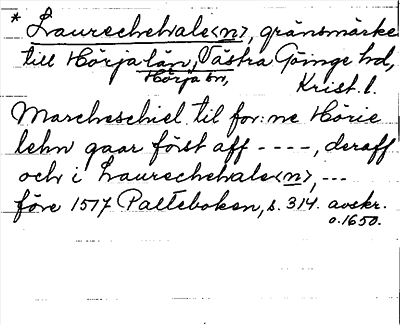 * Laurechehvale<n>, gränsmärke
till Hörja län, Västra Göinge hd,
Hörja sn, Krist. l.
Marcheschiel til for:ne Hörie
lehn gaar först aff ----, deraff
och i Laurechehvale<n>, ---
före 1517 Palteboken, s. 314. avskr.
o. 1650.